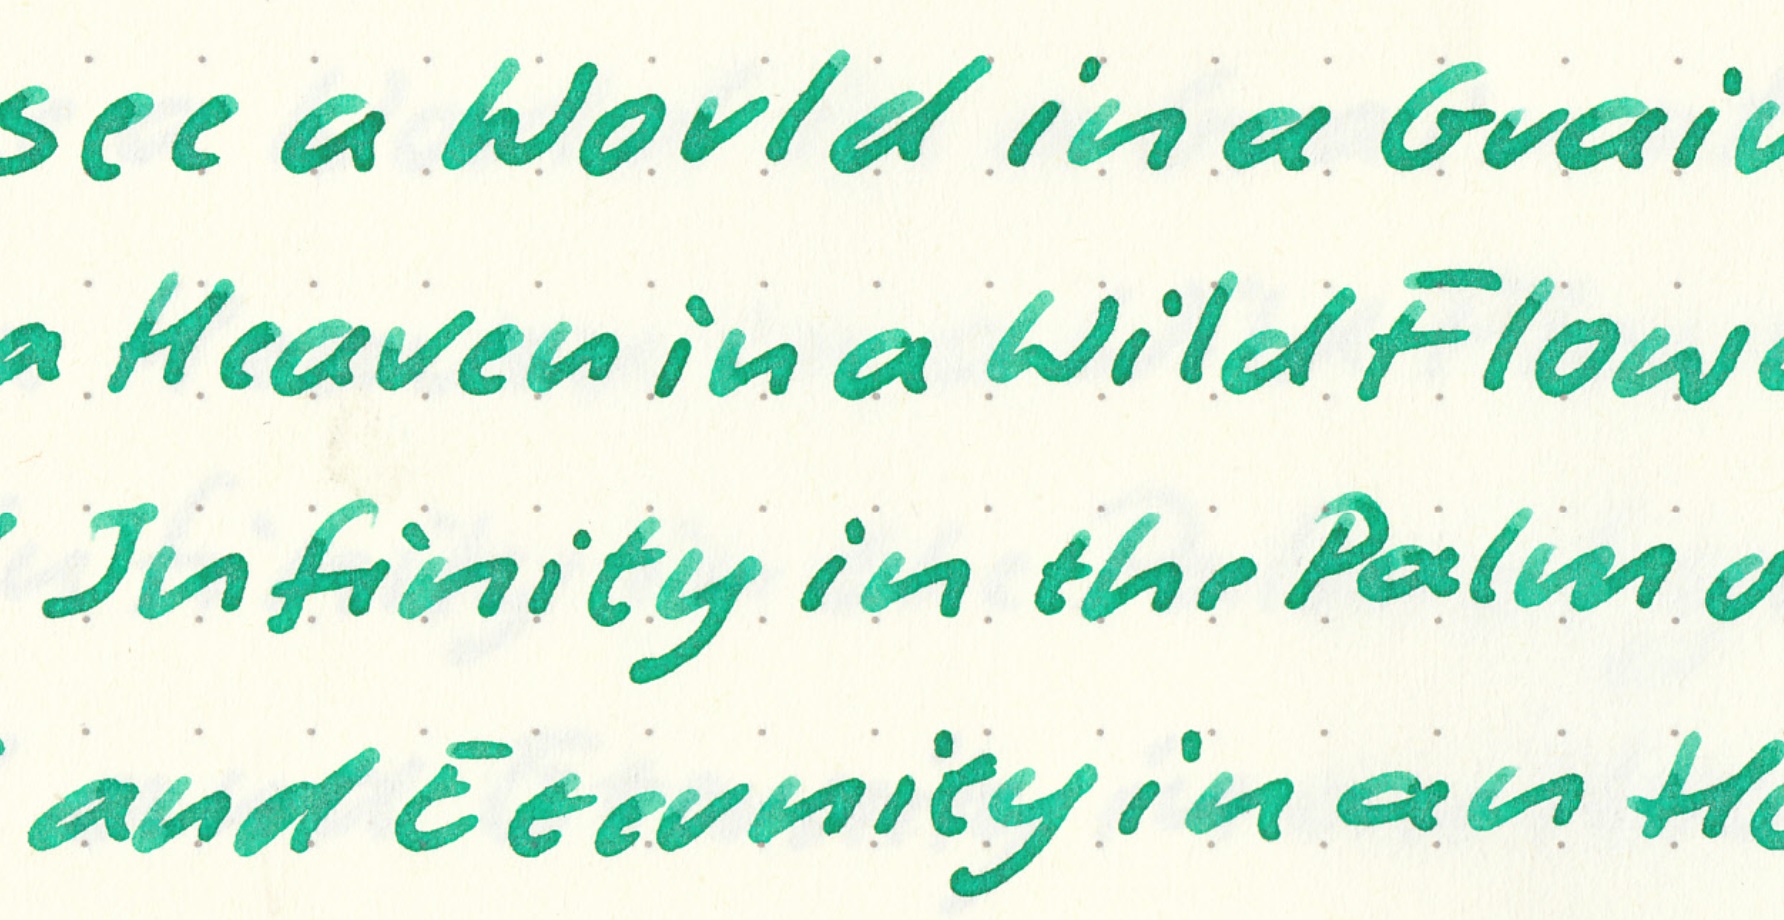 see a World in a Grain
a Heaven in a Wild Flowe
Infinity in the Palm o
and Eternity in an Ho